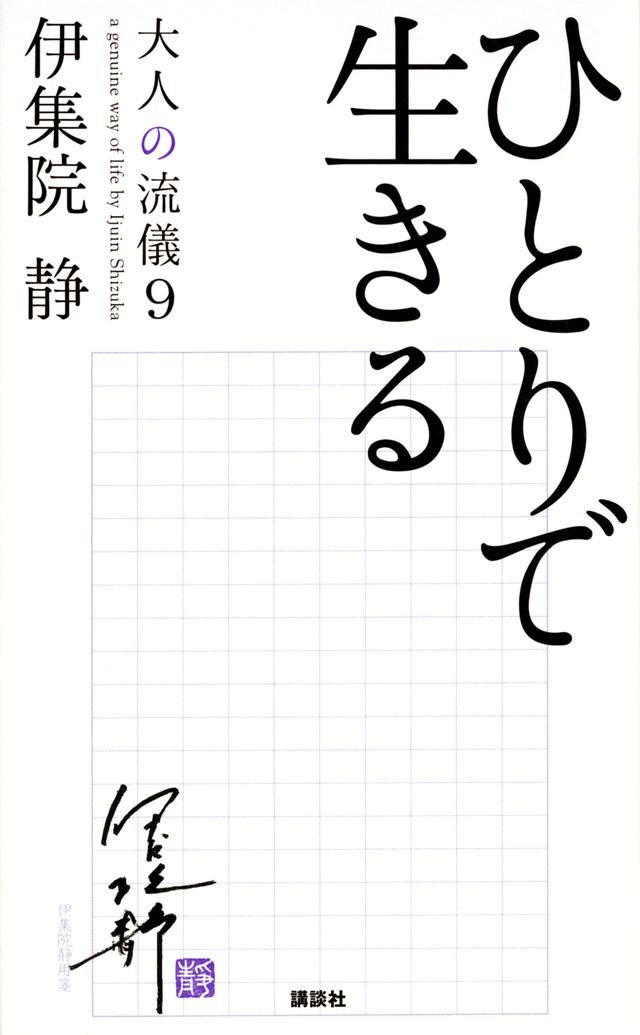 ひとりで
生きる
大人の流儀9
a genuine way of life by Ijuin Shizuka
伊集院 静
伊集院静
靜
伊集院静用箋
講談社